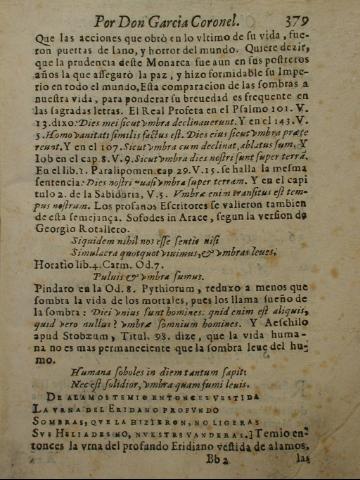 Por Don Garcia Coronel. 379
Que las acciones que obrò en lo vltimo de su vida, fue-
ron puertas de Iano, y horror del mundo. Quiere dezir,
que la prudencia deste Monarca fue aun en sus postreros
años la que assegurò la paz, y hizo formidable su Impe-
rio en todo el mundo. Esta comparacion de las sombras a
nuestra vida, para ponderar su breuedad es frequente en
las sagradas letras. El Real Profeta en el Psalmo 101. V.
13. dixo: Dies mei sicut vmbra declinauerunt. Y en el 143. V.
5. Homo vanitati similis factus est. Dies eius sicut vmbra præte
reunt. Y en el 107. Sicut vmbra cum declinat, ablatus sum. Y
Iob en el cap. 8. V. 9. Sicut vmbra dies nostri sunt super terrã.
En el lib. 1. Paralipomen cap. 29. V. 15. se halla la mesma
sentencia: Dies nostri quasi vmbra super terram. Y en el capi
tulo 2. de la Sabiduria, V. 5. Vmbræ enim transitus est tem-
pus nostram. Los profanos Escritores se valieron tambien
de esta semejança. Sofodes in Arace, segun la version de
Georgio Rotallero.
Siquidem nihil nos esse sentio nisi
Simulacra quotquot viuimus, & vmbras leues.
Horatio lib. 4. Carm. Od. 7.
Puluis & vmbra sumus.
Pindaro en la Od. 8. Pythiorum, reduxo a menos que
sombra la vida de los mortales, pues los llama sueño de
la sombra: Diei vnius sunt homines. quid enim est aliquis,
quid vero nullus? vmbræ somnium homines. Y Aeschilo
apud Stobæum, Titul. 98. dize, que la vida huma-
na no es mas permaneciente que la sombra leue del hu-
mo.
Humana soboles in diem tantum sapit:
Nec est solidior, vmbra quam fumi leuis.
DE ALAMOS TEMIO ENTONCES VESTIDA
LA VRNA DEL ERIDANO PROFVNDO
SOMBRAS, QVE LA HIZIERON, NO LIGERAS
SVS HELIADES NO, NVESTRAS VANDERAS.] Temio en-
tonces la vrna del profundo Eridiano vestida de alamos,
Bb 2 las